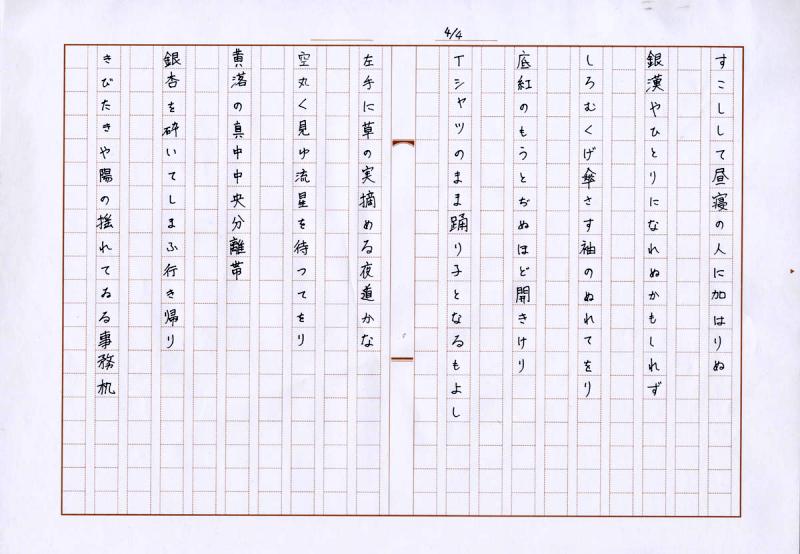 4/4
すこしして昼寝の人に加はりぬ
銀漢やひとりになれぬかもしれず
しろむくげ傘さす袖のぬれてをり
底紅のもうとぢぬほど開きけり
Tシャツのまま踊り子となるもよし
左手に草の実摘める夜道かな
空丸く見ゆ流星を待つてをり
黄落の真中中央分離帯
銀杏を砕いてしまふ行き帰り
きびたきや陽の揺れてゐる事務机